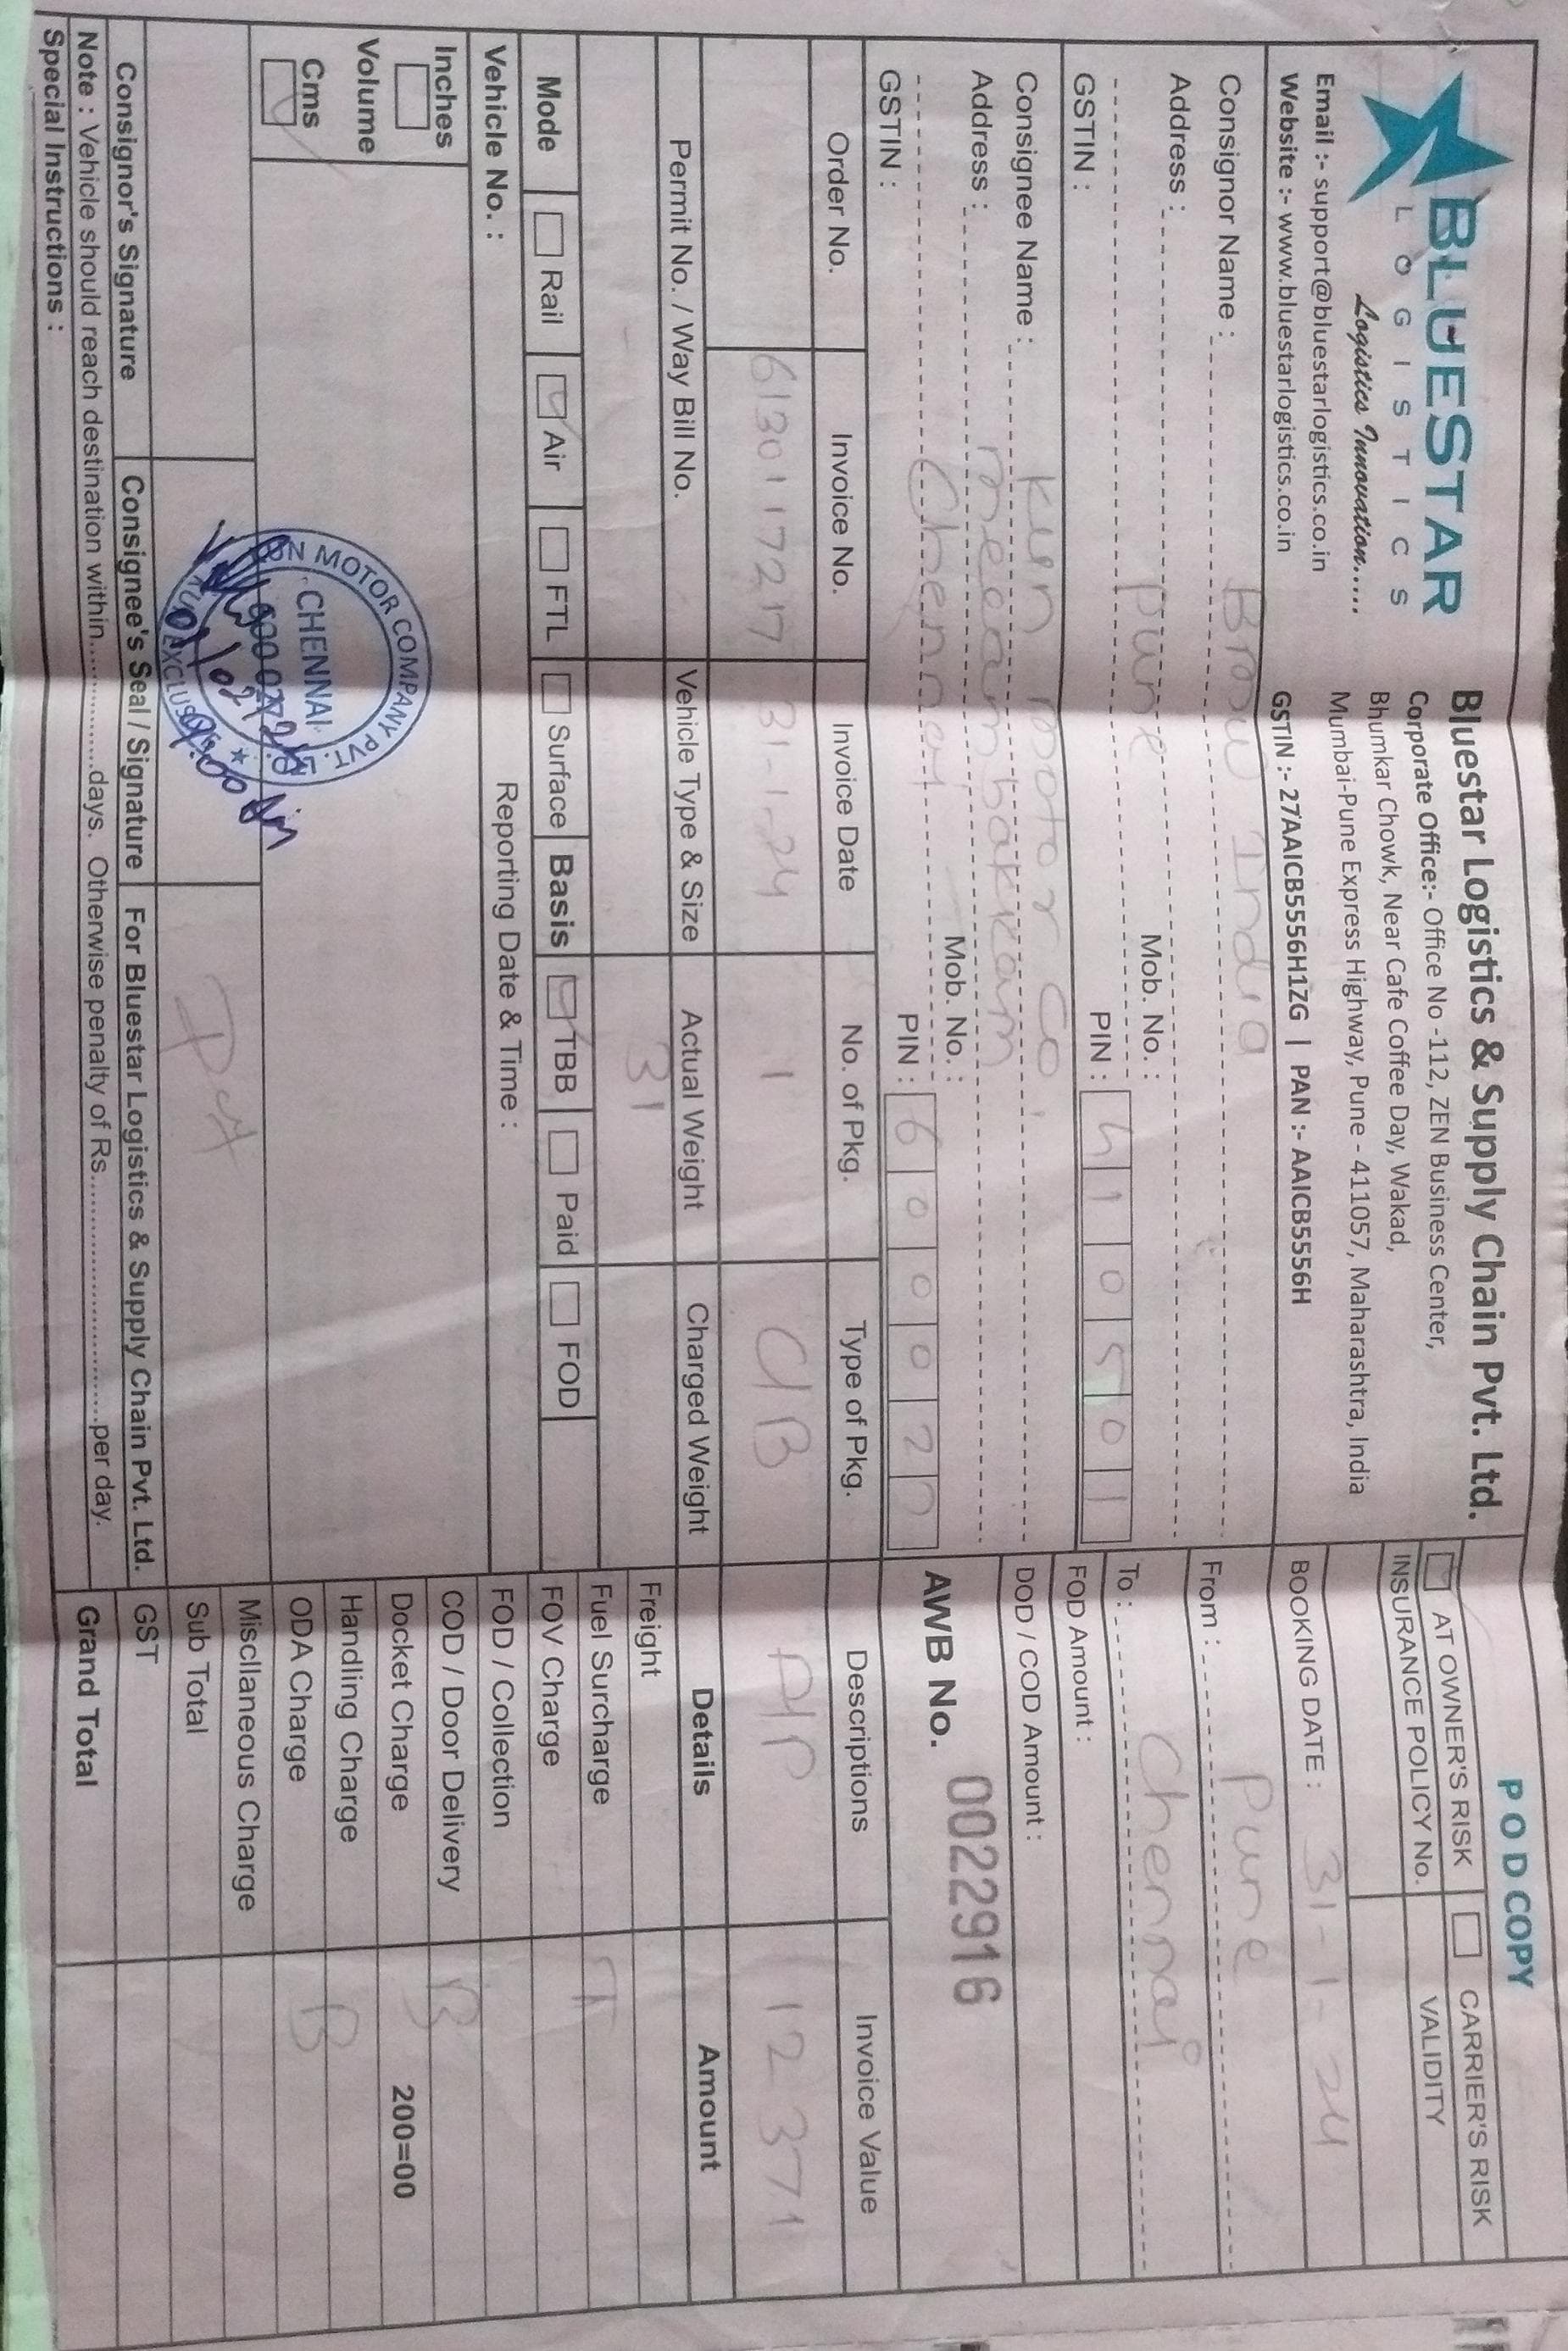 BLUESTAR
LOGISTICS
Logistics Innovation.....
Email :- support@bluestarlogistics.co.in
Website :- www.bluestarlogistics.co.in
Bluestar Logistics & Supply Chain Pvt. Ltd.
Corporate Office:- Office No -112, ZEN Business Center,
Bhumkar Chowk, Near Cafe Coffee Day, Wakad,
Mumbai-Pune Express Highway, Pune - 411057, Maharashtra, India
GSTIN :- 27AAICB5556H1ZG | PAN :- AAICB5556H
POD COPY
AT OWNER'S RISK CARRIER'S RISK
INSURANCE POLICY No. VALIDITY
BOOKING DATE : 31-1-24
From : Pune
To : Chennai
FOD Amount :
DOD / COD Amount :
AWB No. 0022916
Consignor Name : India
Address :
Pune Mob. No. :
PIN : 410501
GSTIN :
Consignee Name : Kun motor co.
Address :
Chennai Mob. No. :
PIN : 600027
GSTIN :
Order No. Invoice No. Invoice Date No. of Pkg. Type of Pkg. Descriptions Invoice Value
6130117217 31-1-24 1 C/B A/P 12371
Permit No. / Way Bill No. Vehicle Type & Size Actual Weight Charged Weight
31
Mode Rail Air FTL Surface Basis TBB Paid FOD
Vehicle No. : Reporting Date & Time :
Inches
Volume
Cms
Details Amount
Freight
Fuel Surcharge T
FOV Charge
FOD / Collection
COD / Door Delivery B
Docket Charge 200=00
Handling Charge
ODA Charge B
Miscllaneous Charge
Sub Total
GST
Grand Total
KUN MOTOR COMPANY PVT. LTD.
CHENNAI
600 027
KUN EXCLUSIVE
9:00
Consignor's Signature Consignee's Seal / Signature For Bluestar Logistics & Supply Chain Pvt. Ltd.
Note : Vehicle should reach destination within................days. Otherwise penalty of Rs...............................per day.
Special Instructions :